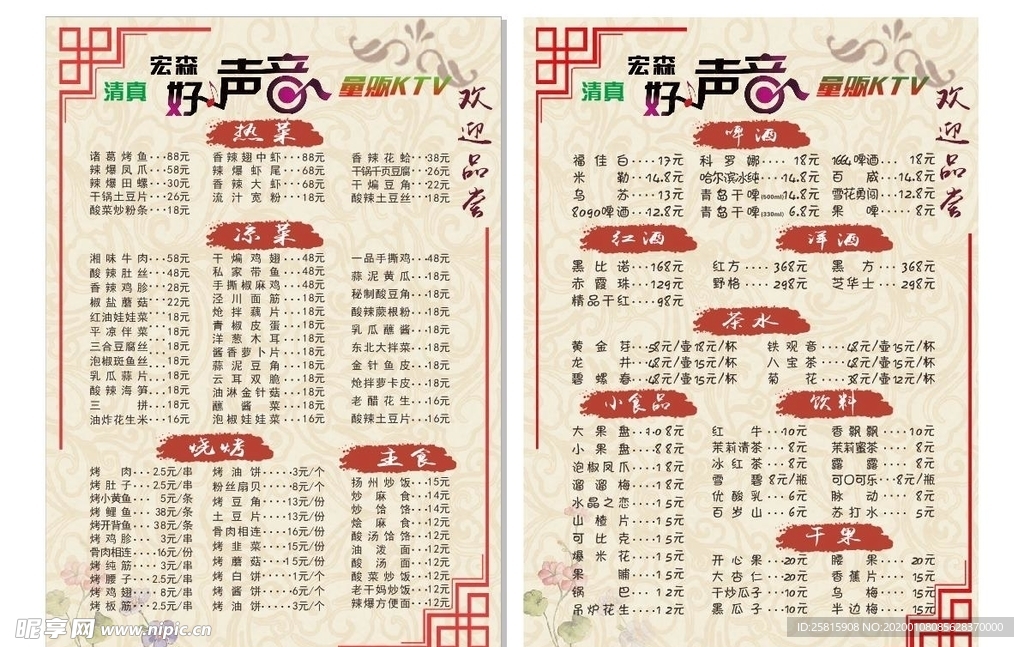 宏森
清真 好声音 量贩KTV
欢迎品尝
热菜
诸葛烤鱼···88元
辣爆凤爪···58元
辣爆田螺···30元
干锅土豆片···26元
酸菜炒粉条···18元
香辣翅中虾···88元
辣爆虾尾···68元
香辣大虾···68元
流汁宽粉···18元
香辣花蛤···38元
干锅千页豆腐···26元
干煸豆角···22元
酸辣土豆丝···18元
凉菜
湘味牛肉···58元
酸辣肚丝···48元
香辣鸡胗···28元
椒盐蘑菇···22元
红油娃娃菜···18元
平凉伴菜···18元
三合豆腐丝···18元
泡椒斑鱼丝···18元
乳瓜蒜片···18元
酸辣海笋···18元
三拼···18元
油炸花生米···16元
干煸鸡翅···48元
私家带鱼···48元
手撕椒麻鸡···48元
泾川面筋···18元
炝拌藕片···18元
青椒皮蛋···18元
洋葱木耳···18元
酱香萝卜片···18元
蒜泥豆角···18元
云耳双脆···18元
油淋金针菇···18元
蘸酱菜···18元
泡椒娃娃菜···16元
一品手撕鸡···48元
蒜泥黄瓜···18元
秘制酸豆角···18元
酸辣蕨根粉···18元
乳瓜蘸酱···18元
东北大拌菜···18元
金针鱼皮···18元
炝拌萝卜皮···18元
老醋花生···16元
酸辣土豆片···16元
烧烤
烤肉···2.5元/串
烤肚子···2.5元/串
烤小黄鱼···5元/条
烤鲤鱼···38元/条
烤开背鱼···38元/条
烤鸡胗···3元/串
骨肉相连···16元/份
烤纯筋···3元/串
烤腰子···2.5元/串
烤鸡翅···8元/串
烤板筋···2.5元/串
烤油饼····3元/个
粉丝扇贝···8元/个
烤豆角···13元/份
土豆片···13元/份
骨肉相连···16元/份
烤韭菜···15元/份
烤蘑菇···15元/份
烤白饼···1元/个
烤酱饼···6元/个
烤油饼···3元/个
主食
扬州炒饭···15元
炒麻食···14元
炒饸饹···14元
烩麻食···12元
酸汤饸饹···12元
油泼面···12元
酸汤面···12元
酸菜炒饭···12元
老干妈炒饭···12元
辣爆方便面···12元
宏森
清真 好声音 量贩KTV
欢迎品尝
啤酒
福佳白····17元
米勒··14.8元
乌苏···13元
8090啤酒··12.8元
科罗娜····18元
哈尔滨冰纯···14.8元
青岛干啤(500ml)14.8元
青岛干啤(330ml) 6.8元
1664啤酒··18元
百威··14.8元
雪花勇闯···12.8元
果啤···8元
红酒
黑比诺···168元
赤霞珠···129元
精品干红····98元
红方····368元
野格····298元
洋酒
黑方···368元
芝华士···298元
茶水
黄金芽···58元/壶18元/杯
龙井··48元/壶15元/杯
碧螺春··48元/壶15元/杯
铁观音····48元/壶15元/杯
八宝茶····48元/壶15元/杯
菊花····38元/壶12元/杯
小食品
大果盘··108元
小果盘···88元
泡椒凤爪···18元
溜溜梅···18元
水晶之恋···15元
山楂片···15元
可比克···15元
爆米花···15元
果脯···15元
锅巴···12元
吊炉花生···12元
红牛···10元
茉莉清茶···8元
冰红茶···8元
雪碧 8元/瓶
优酸乳···6元
百岁山···6元
饮料
香飘飘····10元
茉莉蜜茶···8元
露露···8元
可口可乐···8元/瓶
脉动···8元
苏打水···5元
干果
开心果···20元
大杏仁···20元
干炒瓜子···10元
黑瓜子···10元
腰果···20元
香蕉片···15元
乌梅···15元
半边梅···15元
昵享网 www.nipic.cn
ID:25815908 NO:20200108085628370000